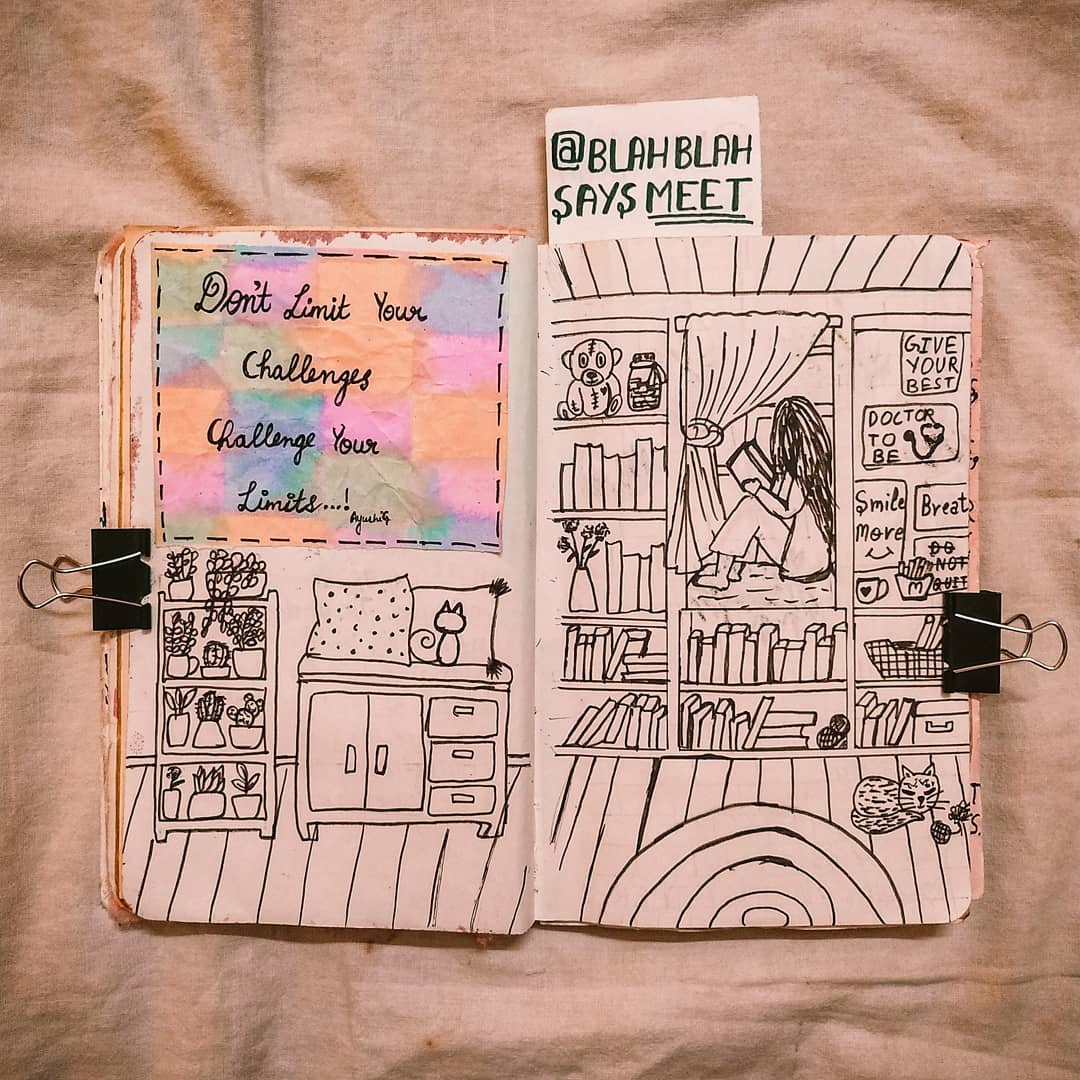 @BLAHBLAH
SAYS MEET
Don't Limit Your
Challenges
Challenge Your
Limits...!
GIVE
YOUR
BEST
DOCTOR
TO
BE
Smile
More
Breat
DO
NOT
QUIT
M